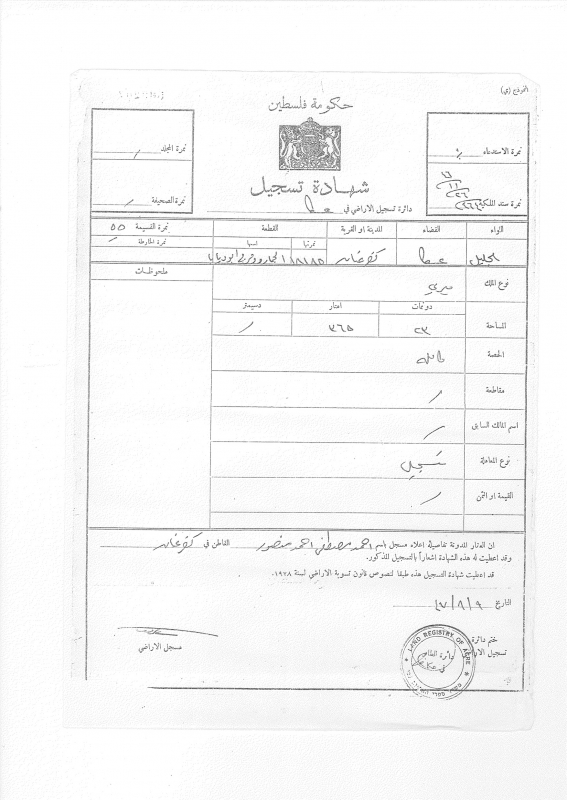 النموذج (ي)
حكومة فلسطين
نمرة الاستدعاء
نمرة المجلد /
شهادة تسجيل
١٥
١١
٣٦
نمرة سند الملكية
نمرة الصحيفة /
دائرة تسجيل الاراضي في عكا
اللواء القضاء المدينة او القرية القطعة نمرة القسيمة ٥٥
نمرتها اسمها نمرة الخارطة /
الجليل عكا ١٨١٨٥
نوع الملك ميري
ملحوظات
دونمات امتار دسيمتر
المساحة ٢٣ ٣٦٥ /
الحصة كاملة
مقاطعة /
اسم المالك السابق /
نوع المعاملة تسجيل
القيمة او الثمن /
ان العقار المدونة تفاصيله اعلاه مسجل باسم احمد مصطفى احمد منصور القاطن في
وقد اعطيت له هذه الشهادة اشعاراً بالتسجيل المذكور.
قد اعطيت شهادة التسجيل هذه طبقا لنصوص قانون تسوية الاراضي لسنة ١٩٢٨.
التاريخ ٤٧/٨/٩
ختم دائرة
تسجيل الار
مسجل الاراضي
LAND REGISTRY OF ACRE